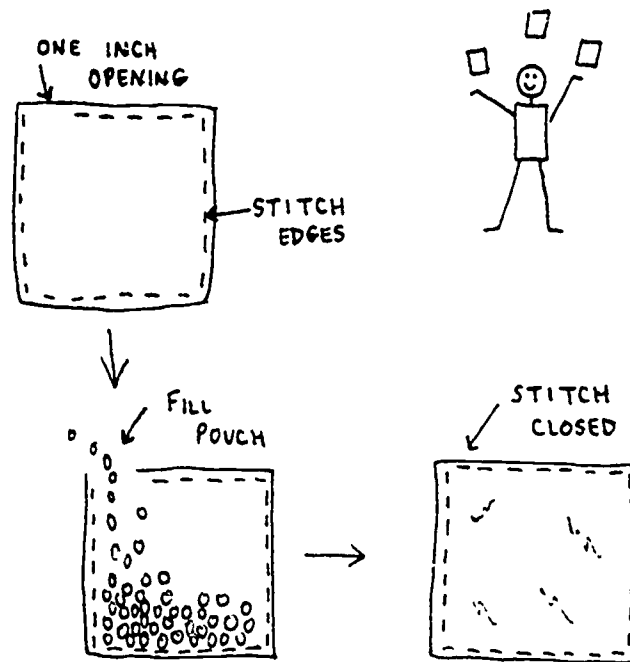 ONE INCH
OPENING
STITCH
EDGES
FILL
POUCH
STITCH
CLOSED